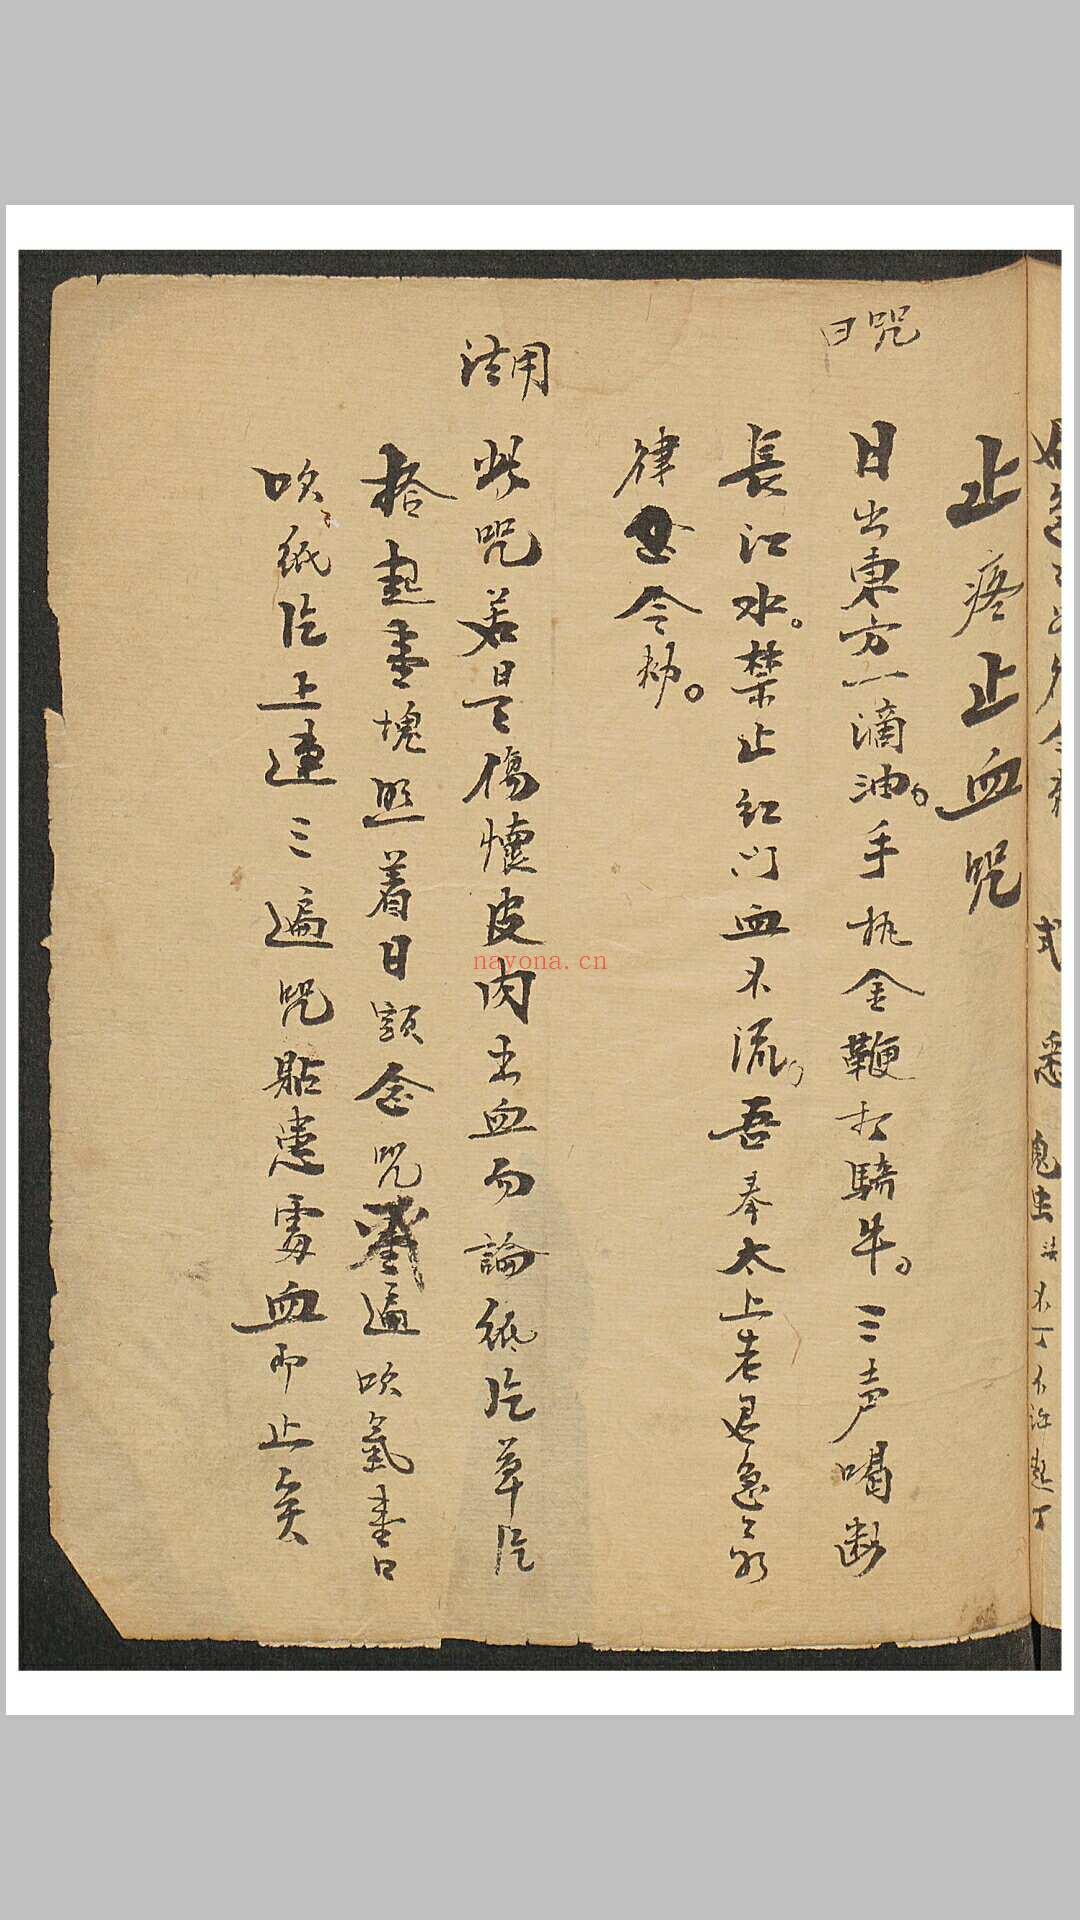 止疼止血咒
咒曰
日出東方一滴油手执金鞭打騎牛三声喝断
長江水禁止红门血不流吾奉太上老君急急如
律令
用法
此咒若是傷懷皮肉出血勿論紙片草片
拾起壹塊照着日頭念咒遍吹氣壹口
吹紙片上連三遍咒貼患處血即止矣
navona.cn